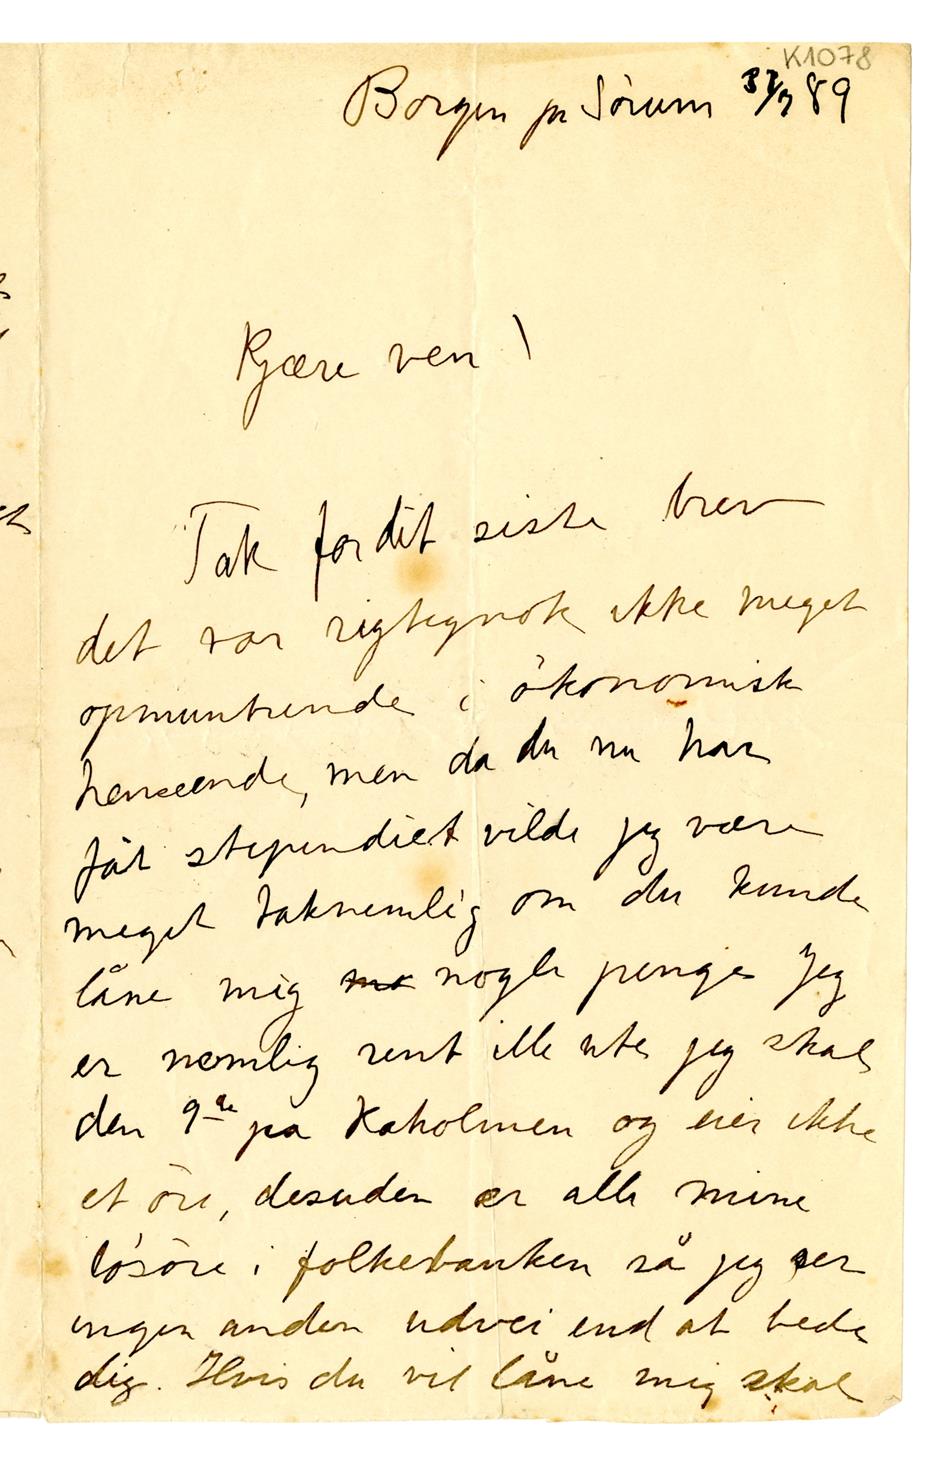 K1078
Borgen pr Sörum 89
Kjære ven!
Tak for dit siste brev
det var rigtignok ikke meget
opmuntrende i ökonomisk
henseende, men da du nu har
fåt stipendiet vilde jeg være
meget taknemlig om du kunde
låne mig nogle penge Jeg
er nemlig rent ille ute jeg skal
den 9de på Kaholmen og eier ikke
et öre, desuden er alle mine
lösöre i folkebanken så jeg ser
ingen anden udvei end at bede
dig. Hvis du vil låne mig skal